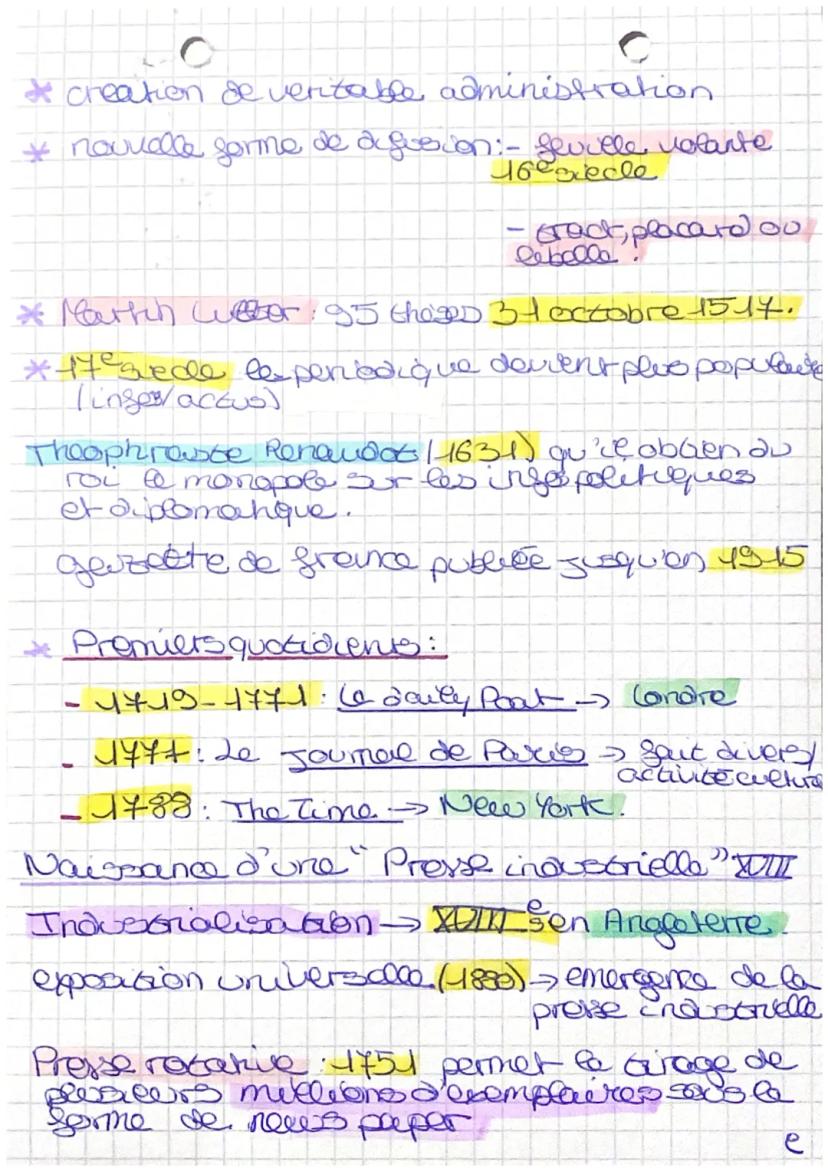 * creation de veritable administration
* nouvelle forme de difusion:- feuille volante
16e siecle
- tract, placard ou
libelle.
* Martin Luther: 95 theses 31 octobre 1517.
* 17e siecle le periodique devient plus populaire
(infos/actus)
Theophraste Renaudot (1631) qu'il obtien du
roi le monopole sur les infos politiques
et diplomatique.
gazette de france publiée jusqu'en 1915
* Premiers quotidiens:
- 1719-1771: Le daily Post → Londre
- 1777: Le Journal de Paris → fait divers/
activité culture
- 1788: The Time → New York.
Naissance d'une "Presse industrielle" XVIII
Industrialisation → XVIIIe s en Angleterre.
exposition universelle (1880) → emergence de la
presse industrielle
Presse rotative: 1751 permet le tirage de
plusieurs millions d'exemplaires sous la
forme de news paper
e